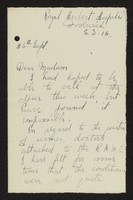 Royal Herbert Hospital
Woolwich
S.E. 18.
25th Sept.
Dear Madam
I had hoped to be
able to call at the
office this week but
have found it
impossible.
In regard to the position
of women doctors
attached to the R.A.M.C.
I have felt for some
time that the conditions
were not quite